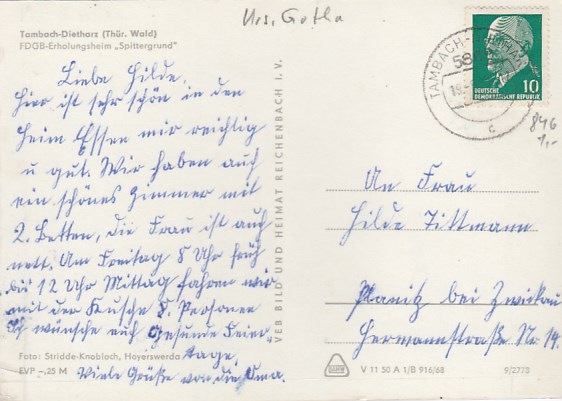 Krs. Gotha
Tambach-Dietharz (Thür. Wald)
FDGB-Erholungsheim „Spittergrund"
Liebe Hilde.
Hier ist sehr schön in den
Heim Essen mir reichlig
u gut. Wir haben auf
ein schönes Zimmer mit
2. Betten, die Frau ist auch
nett. Am Freitag 8 Uhr früh
bis 12 Uhr Mittag fahren wir
mit der Kusche 8. Personen
wünsche auch Gesunde Feier
tage,
Viele Grüße von die Oma.
Foto: Stridde-Knobloch, Hoyerswerda
EVP –,25 M
VEB BILD UND HEIMAT REICHENBACH I. V.
TAMBACH-
58
c
DEUTSCHE
DEMOKRATISCHE REPUBLIK
10
846
1,-
An Frau
Hilde Tittmann
Planitz bei Zwickau
Hermannstraße Nr. 14.
V 11 50 A 1/B 916/68
9/2778